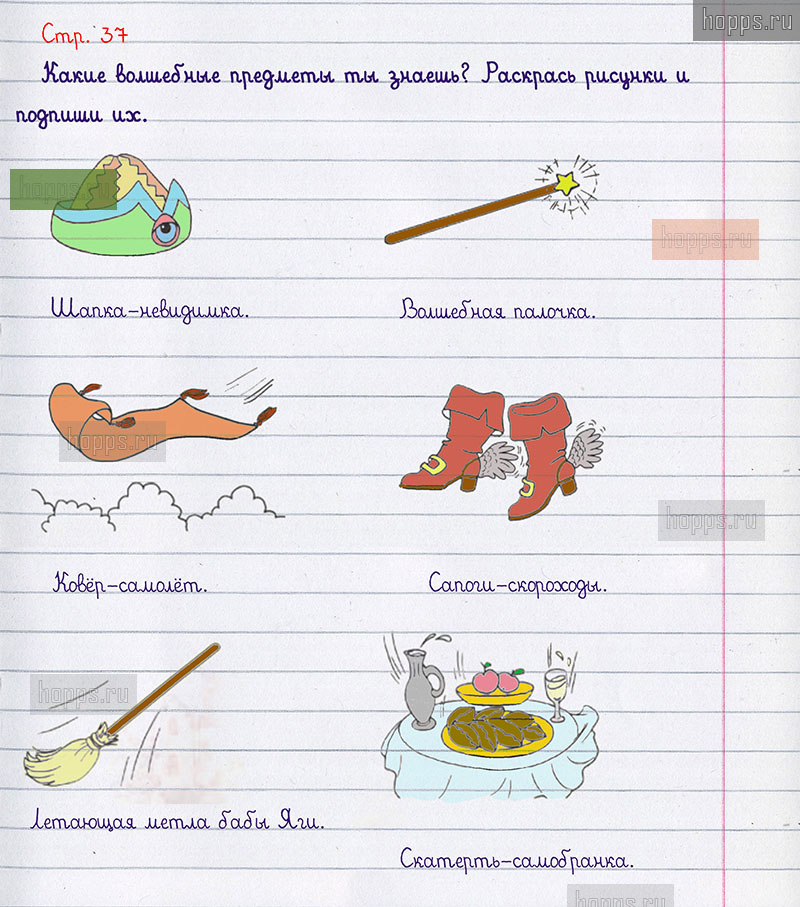 hopps.ru
Стр. 37
Какие волшебные предметы ты знаешь? Раскрась рисунки и
подпиши их.
hopps.ru
hopps.ru
Шапка-невидимка.
Волшебная палочка.
hopps.ru
hopps.ru
Ковёр-самолёт.
Сапоги-скороходы.
hopps.ru
Летающая метла бабы Яги.
Скатерть-самобранка.
hopps.ru